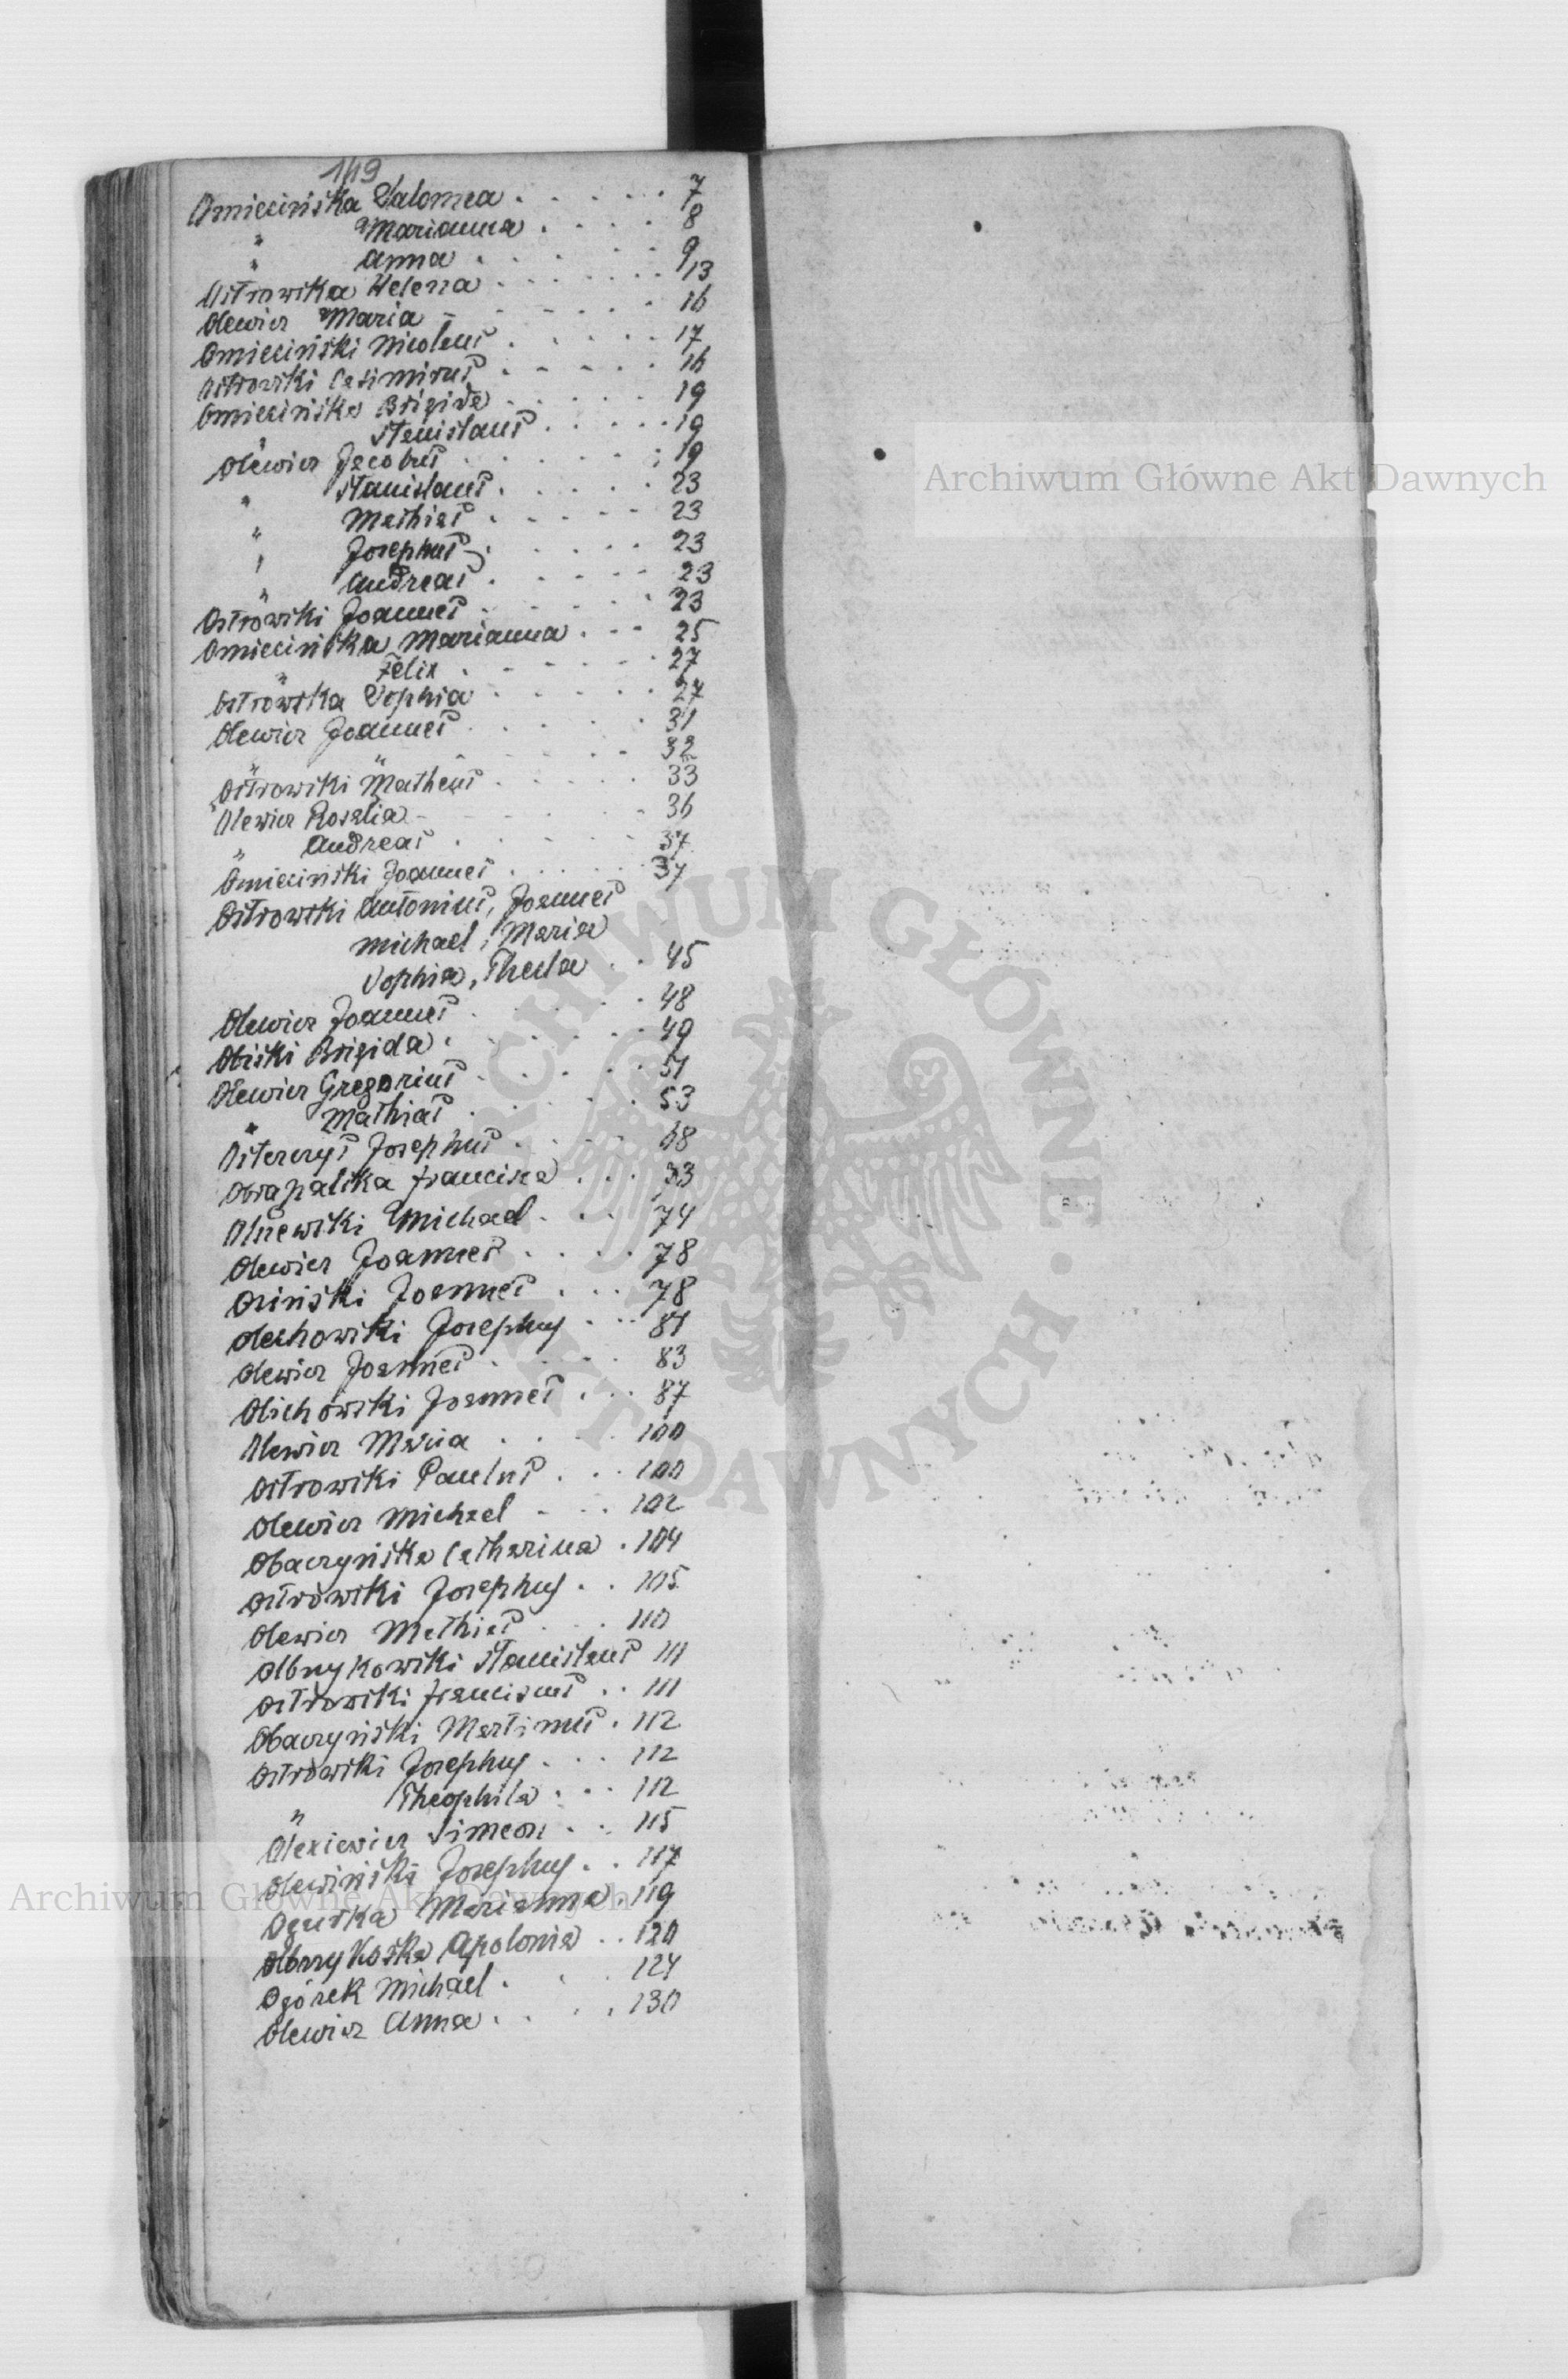 149
Omiecińska Salomea . . . . . 7
" Marianna . . . . 8
" Anna . . . . . 9
Ostrowska Helena . . . . . . 13
Olewicz Maria - - - - . . 16
Omieciński Nicolaus . . . . . 17
Ostrowski Casimirus . - - - . 16
Omiecińska Brigida . . . . . 19
" Stanislaus . . . . . 19
Olewicz Jacobus . . . . . 19
" Stanislaus . . . . . 23
" Mathias . . . - - 23
" Josephus . . . . . 23
" Andreas . . . . - 23
Ostrowski Joannes . . . . . 23
Omiecińska Marianna . - - 25
" Felix . - - - - . 27
Ostrowska Sophia . . . . . 27
Olewicz Joannes . . . . . 31
" " - - - - 32
Ostrowski Matheus . . . . . 33
Olewicz Rosalia - - - . . - 36
" Andreas . . - . - 37
Omieciński Joannes . . . . . 37
Ostrowski Antonius, Joannes
Michael, Maria
Sophia, Thecla . . 45
Olewicz Joannes . . . . . 48
Obiski Brigida . . . . . . 49
Olewicz Gregorius . . . . . 51
" Mathias . . . . . 53
Osterczys Josephus . . . . 68
Obrapalska Francisca . . . 73
Olszewski Michael . . . 74
Olewicz Joannes . . . . 78
Osiński Joannes . . . 78
Olechowski Josephus . . . 81
Olewicz Joannes . . . . 83
Olichowski Joannes . . . 87
Olewicz Maria . . . . 100
Ostrowski Paulus . . . 100
Olewicz Michael - . . 102
Obaczyńska Catharina . 104
Ostrowski Josephus . . 105
Olewicz Mathias . . . 110
Olbrykowski Stanislaus 111
Ostrowski Franciscus . . 111
Obaczyński Martinus . 112
Ostrowski Josephus . . . 112
" Theophila . . . 112
Olexiewicz Simeon . . . 115
Olewiński Josephus . . 117
Ogurka Marianna . 119
Olbrykoska Apolonia . . 120
Ogórek Michael . . . 124
Olewicz Anna . . . . 130
Archiwum Główne Akt Dawnych
ARCHIWUM GŁÓWNE AKT DAWNYCH
Archiwum Główne Akt Dawnych